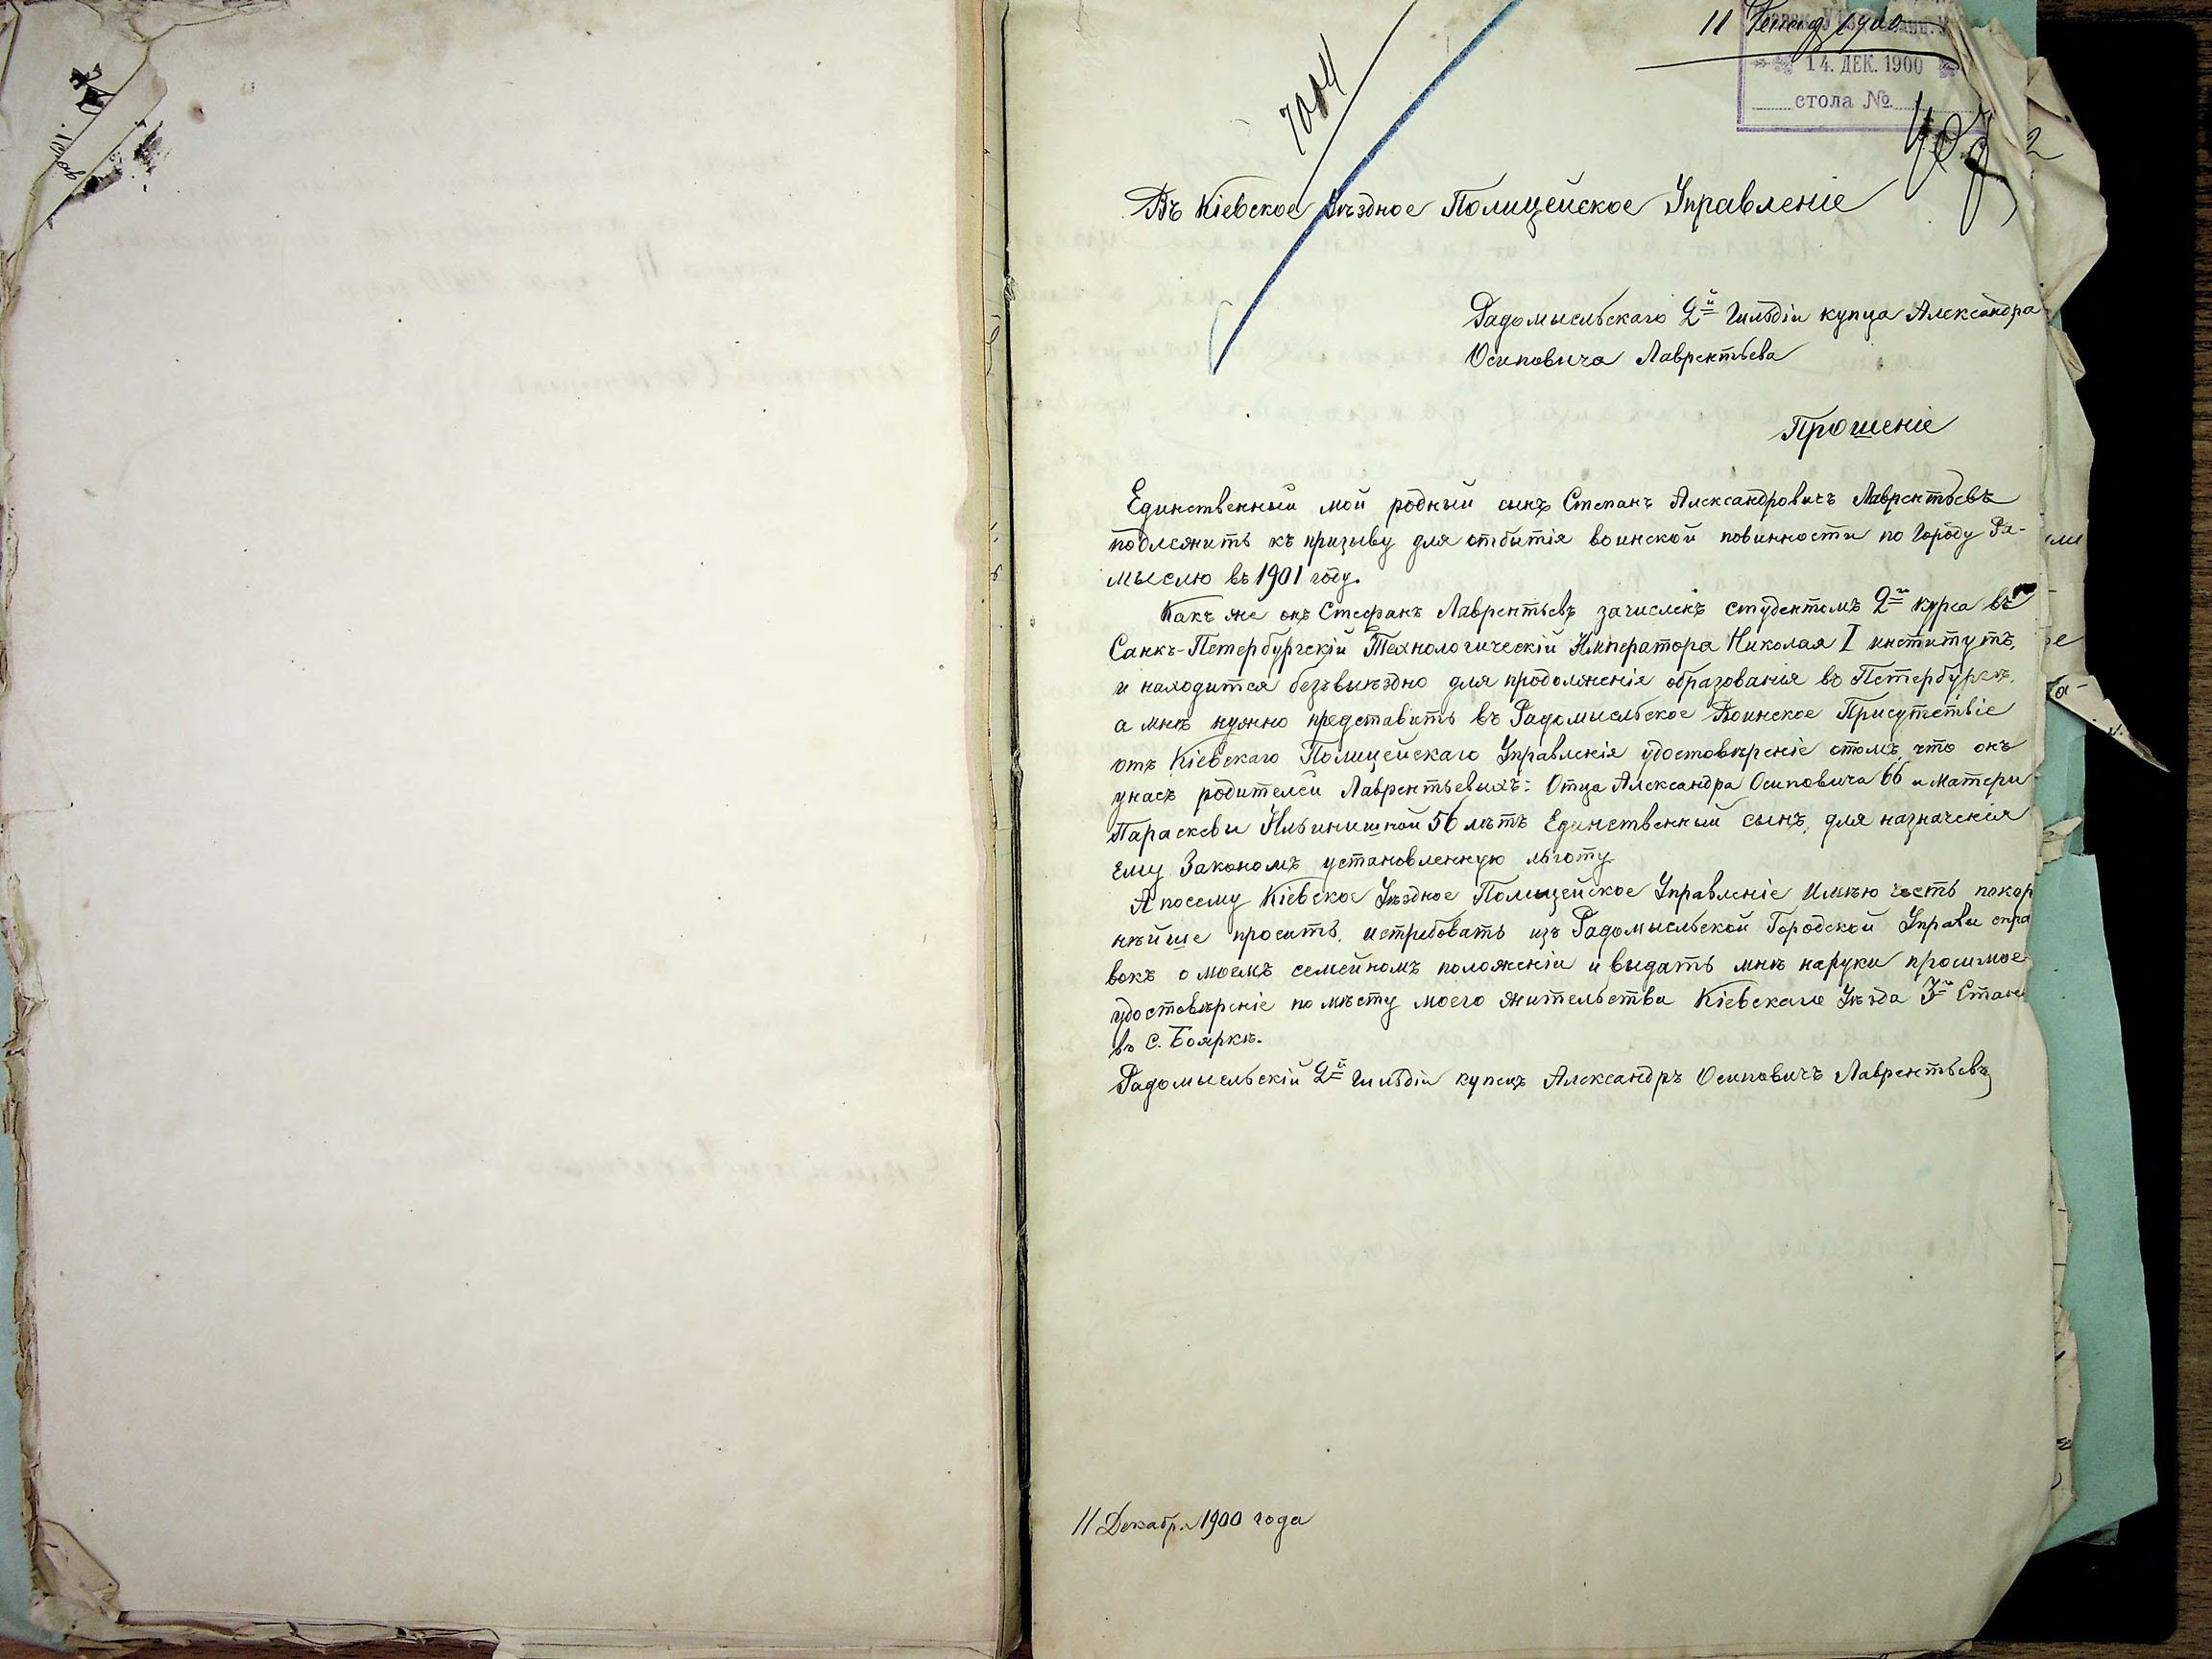 11 Декаб 1900
14. ДЕК. 1900
стола №
7084
2
Въ Кіевское Уѣздное Полицейское Управленіе
Радомысльскаго 2й Гильдіи купца Александра
Осиповича Лаврентьева
Прошеніе
Единственный мой родный сынъ Степанъ Александровичъ Лаврентьевъ
подлежитъ къ призыву для отбытія воинской повинности по Городу Ра-
мыслю въ 1901 году.
Какъ же онъ Стефанъ Лаврентьевъ зачисленъ студентомъ 2го курса въ
Санкъ-Петербургскій Технологическій Императора Николая I институтъ,
и находится безъвыѣздно для продолженія образованія въ Петербургѣ,
а мнѣ нужно представить въ Радомысльское Воинское Присутствіе
отъ Кіевскаго Полицейскаго Управленія удостовѣреніе отомъ, что онъ
унасъ родителей Лаврентьевыхъ: Отца Александра Осиповича 66 и Матери
Параскеви Ильинишной 56 лѣтъ Единственный сынъ, для назначенія
ему Закономъ установленную льготу
А посему Кіевское Уѣздное Полицейское Управленіе Имѣю честь покор
нѣйше просить, истребовать изъ Радомысльской Городской Управи спра
вокъ о моемъ семейномъ положеніи и выдать мнѣ наруки просимое
удостовѣреніе по мѣсту моего жительства Кіевскаго Уѣзда 3го Стана
въ С. Бояркѣ.
Радомысльскій 2й Гильдіи купецъ Александръ Осиповичъ Лаврентьевъ
11 Декабр. 1900 года